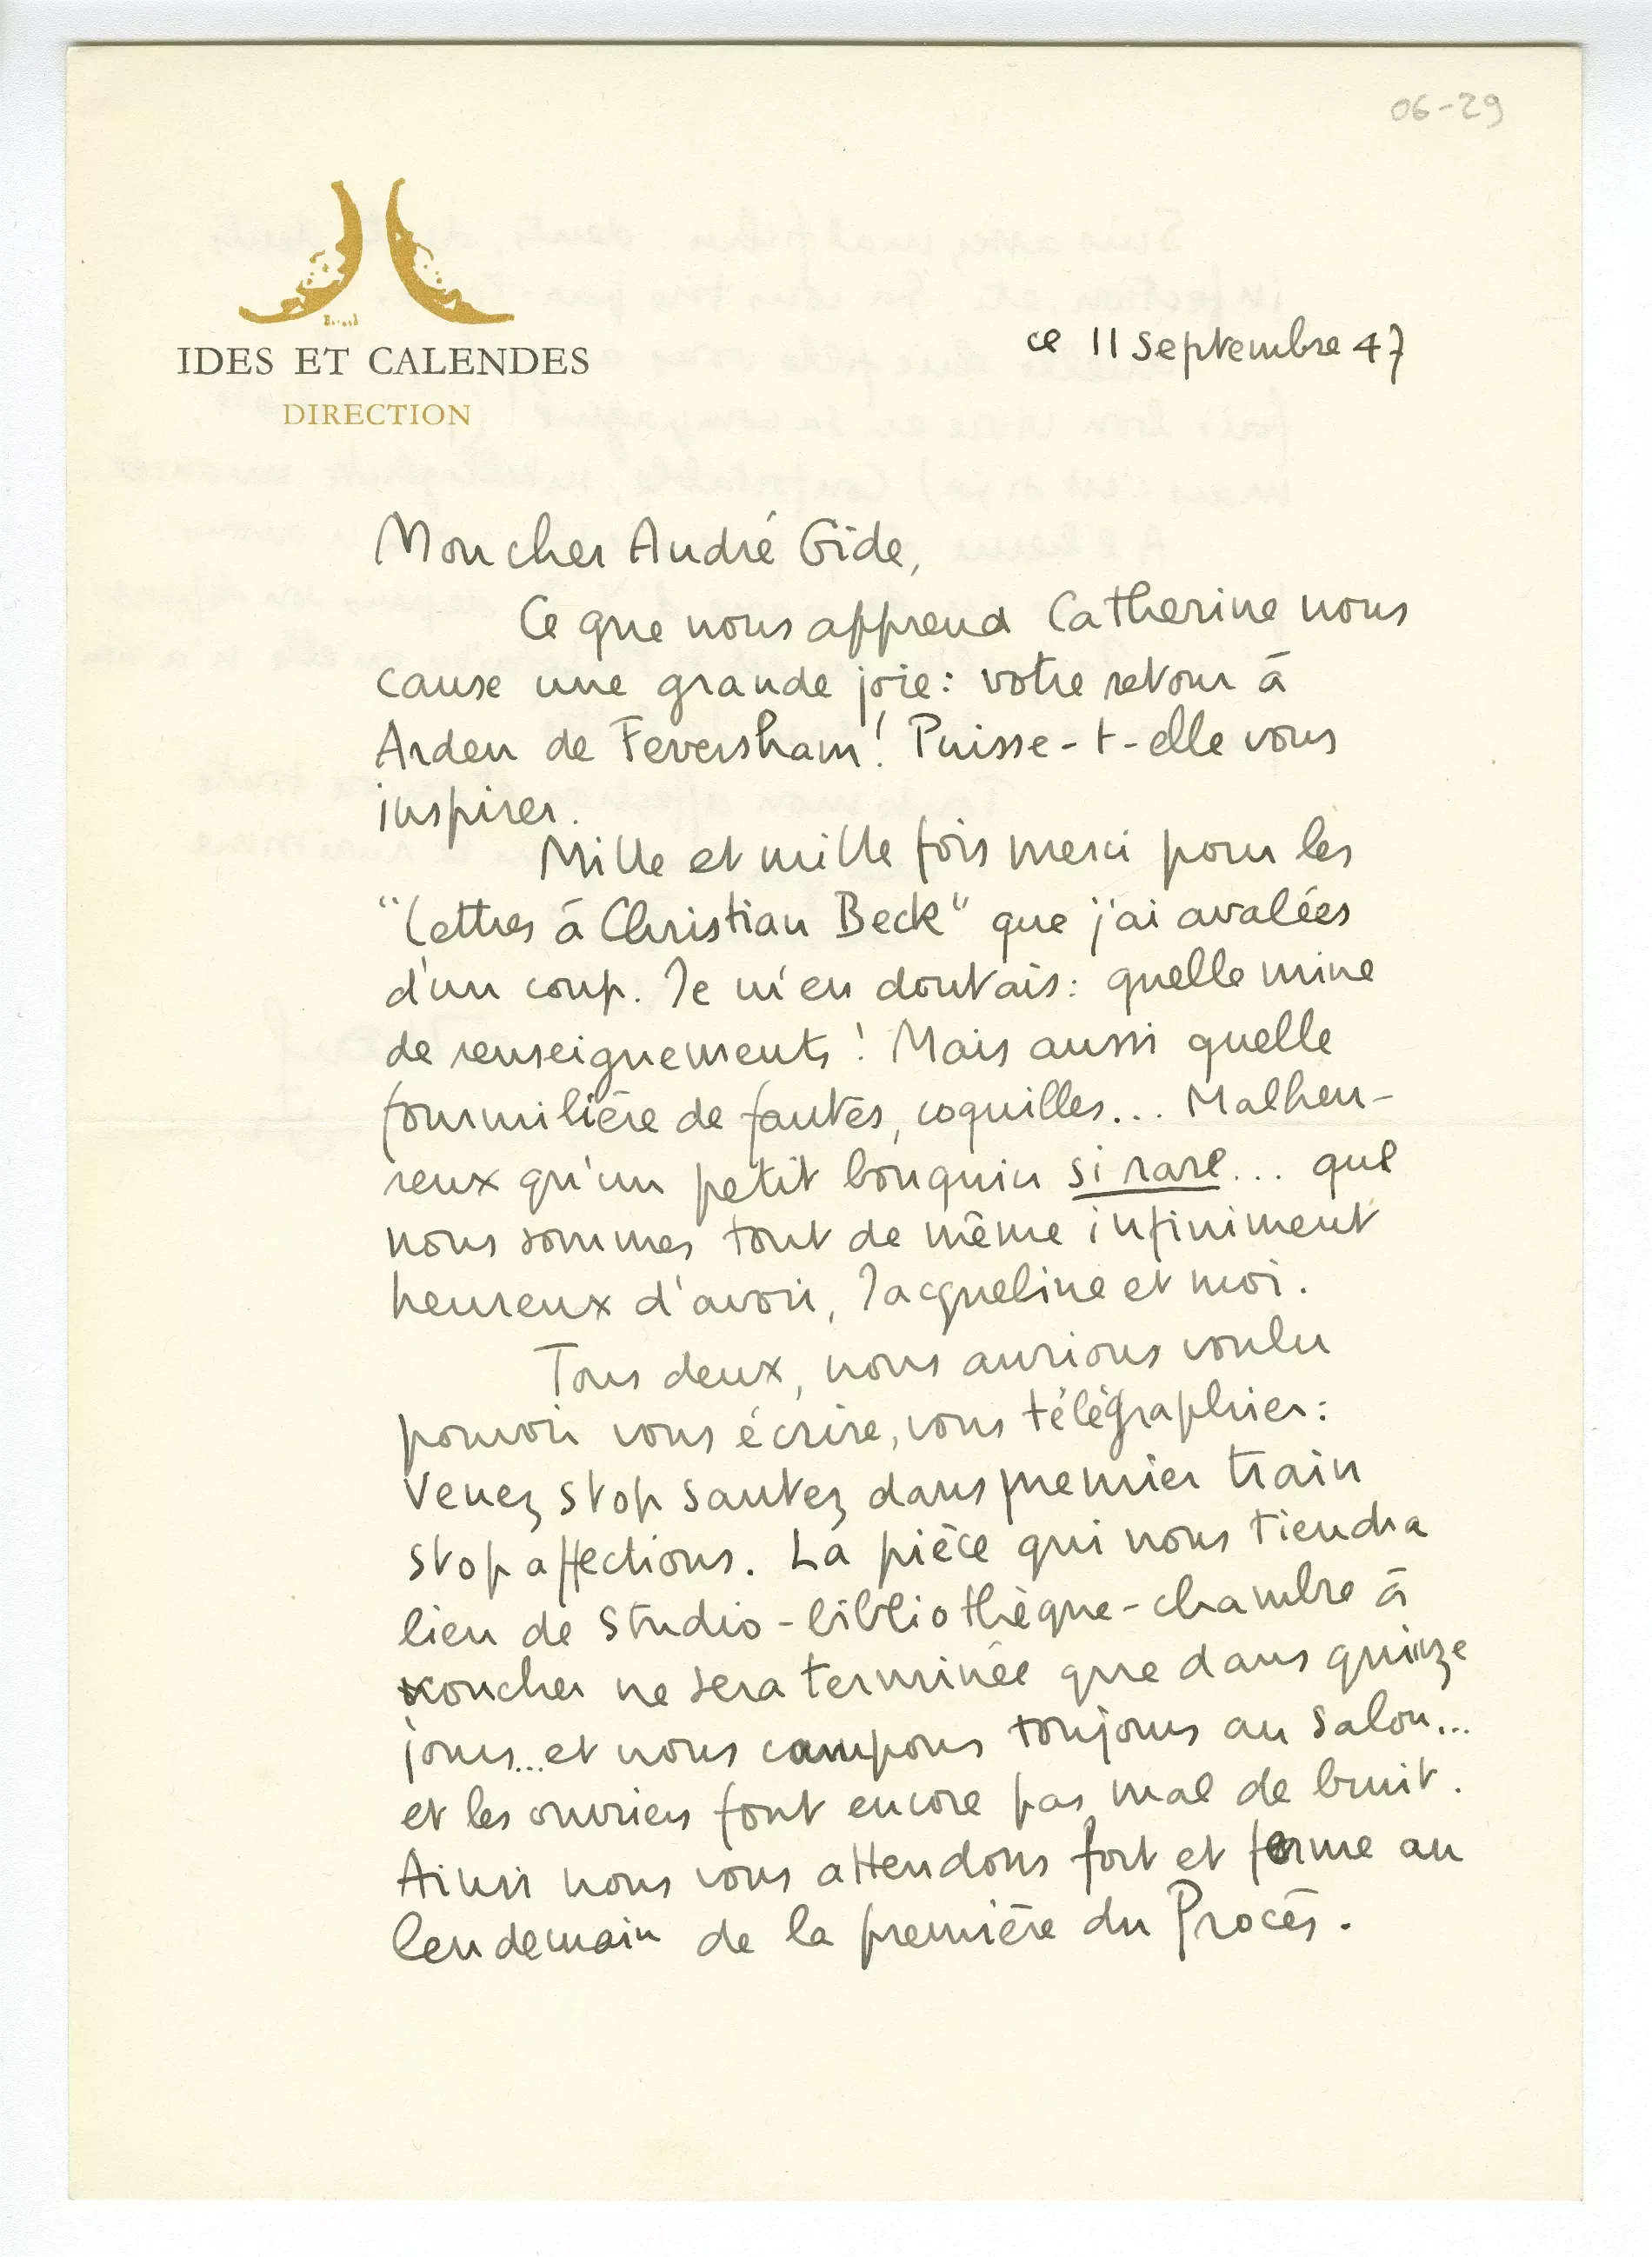 06-29
IDES ET CALENDES
DIRECTION
ce 11 septembre 47
Mon cher André Gide,
Ce que nous apprend Catherine nous
cause une grande joie : votre retour à
Arden de Feversham ! Puisse-t-elle vous
inspirer.
Mille et mille fois merci pour les
"Lettres à Christian Beck" que j'ai avalées
d'un coup. Je m'en doutais : quelle mine
de renseignements ! Mais aussi quelle
fourmilière de fautes, coquilles... Malheu-
reux qu'un petit bouquin si rare... que
nous sommes tout de même infiniment
heureux d'avoir, Jacqueline et moi.
Tous deux, nous aurions voulu
pouvoir vous écrire, vous télégraphier :
Venez stop sautez dans premier train
stop affections. La pièce qui nous tiendra
lieu de studio-bibliothèque-chambre à
coucher ne sera terminée que dans quinze
jours... et nous campons toujours au salon...
et les ouvriers font encore pas mal de bruit.
Ainsi nous vous attendons fort et ferme au
lendemain de la première du Procès.